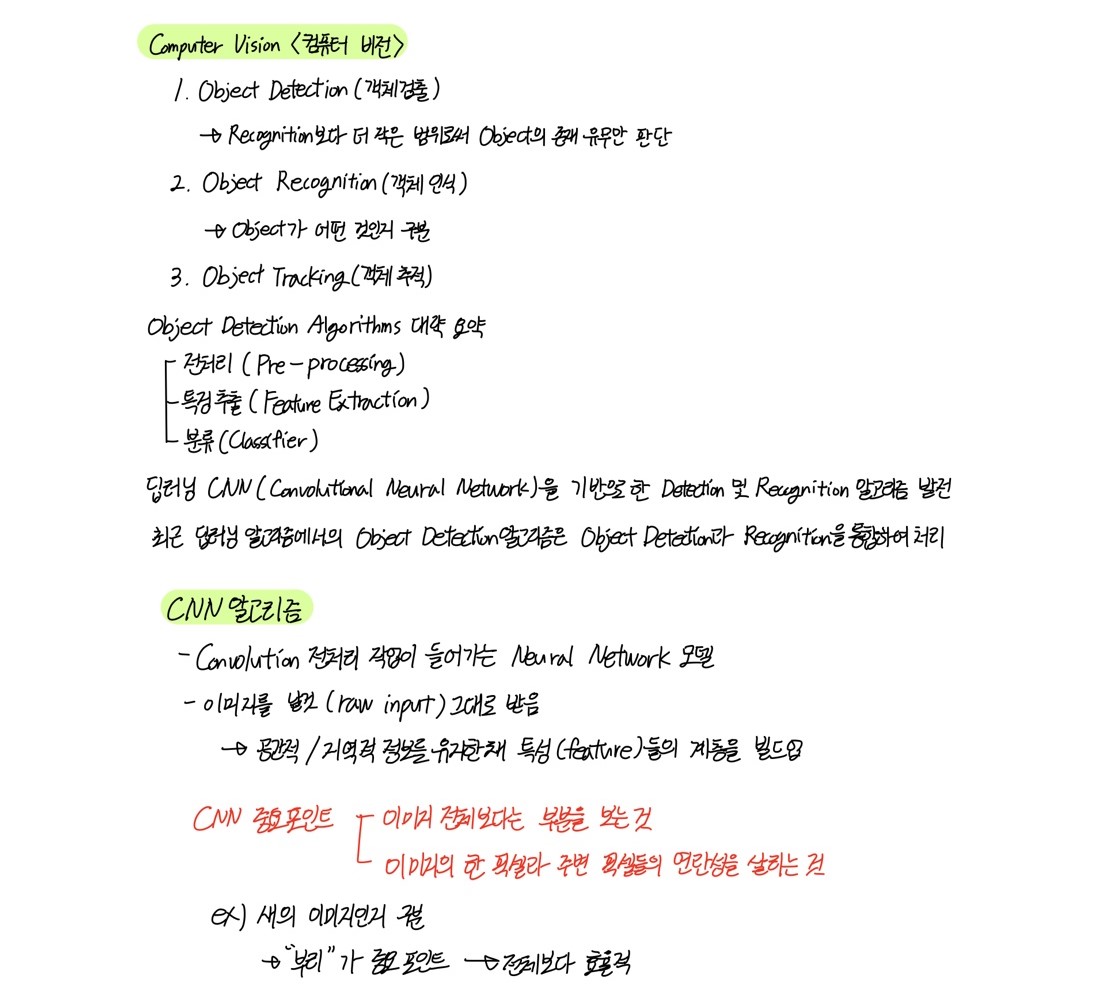 Computer Vision <컴퓨터 비전>
1. Object Detection (객체검출)
→ Recognition보다 더 작은 범위로써 Object의 존재 유무만 판단
2. Object Recognition (객체 인식)
→ Object가 어떤 것인지 구분
3. Object Tracking (객체 추적)
Object Detection Algorithms 대략 요약
전처리 (Pre-processing)
특징추출 (Feature Extraction)
분류 (Classifier)
딥러닝 CNN (Convolutional Neural Network)을 기반으로 한 Detection 및 Recognition 알고리즘 발전
최근 딥러닝 알고리즘에서의 Object Detection알고리즘은 Object Detection과 Recognition을 통합하여 처리
CNN 알고리즘
- Convolution 전처리 작업이 들어가는 Neural Network 모델
- 이미지를 날것 (raw input) 그대로 받음
→ 공간적 / 지역적 정보를 유지한채 특성 (feature)들의 계층을 빌드업
CNN 중요포인트
이미지 전체보다는 부분을 보는 것
이미지의 한 픽셀과 주변 픽셀들의 연관성을 살리는 것
ex) 새의 이미지인지 구별
→ "부리"가 중요 포인트 → 전체보다 효율적